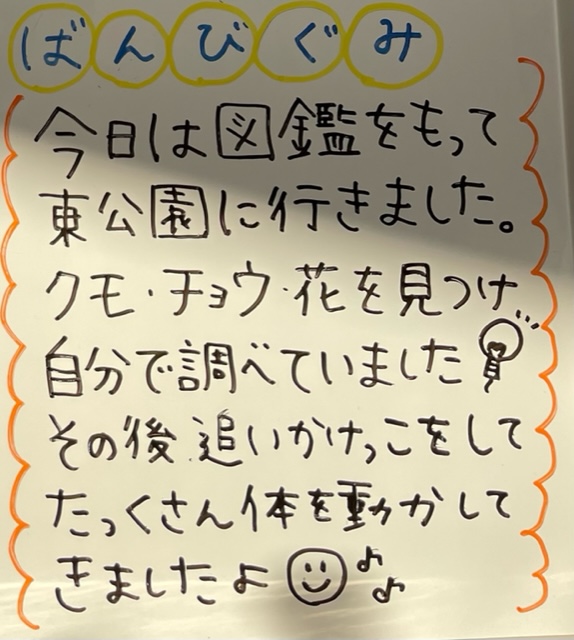 ばんびぐみ
今日は図鑑をもって
東公園に行きました。
クモ・チョウ・花を見つけ
自分で調べていました
その後追いかけっこをして
たっくさん体を動かして
きましたよ